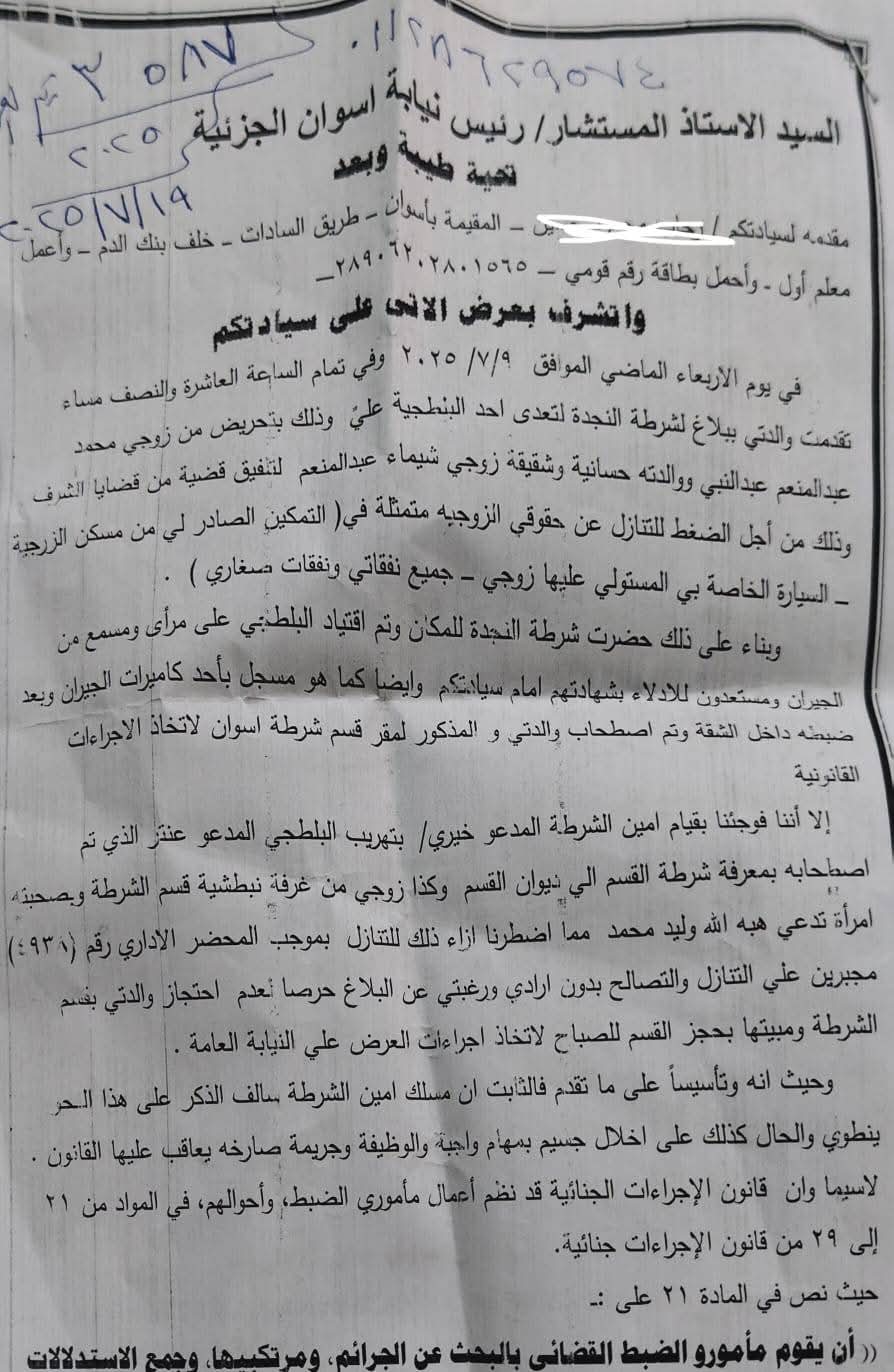 ٠١١٢٨٦٢٩٥٧٤
٥٨٧ ٣
٢٠٢٥
٢٠٢٥/٧/١٩
السيد الاستاذ المستشار/ رئيس نيابة اسوان الجزئية
تحية طيبة وبعد
مقدمه لسيادتكم / – المقيمة بأسوان – طريق السادات – خلف بنك الدم – وأعمل
معلم أول – وأحمل بطاقة رقم قومي – ٢٨٩٠٦٢٠٢٨٠١٥٦٥ –
واتشرف بعرض الاتى على سيادتكم
في يوم الاربعاء الماضي الموافق ٢٠٢٥/٧/٩ وفي تمام الساعة العاشرة والنصف مساء
تقدمت والدتي ببلاغ لشرطة النجدة لتعدى احد البلطجية عليّ وذلك بتحريض من زوجي محمد
عبدالمنعم عبدالنبي ووالدته حسانية وشقيقة زوجي شيماء عبدالمنعم لتلفيق قضية من قضايا الشرف
وذلك من أجل الضغط للتنازل عن حقوقي الزوجيه متمثلة في( التمكين الصادر لي من مسكن الزوجية
– السيارة الخاصة بي المستولي عليها زوجي – جميع نفقاتي ونفقات صغاري ) .
وبناء على ذلك حضرت شرطة النجدة للمكان وتم اقتياد البلطجي على مرأى ومسمع من
الجيران ومستعدون للادلاء بشهادتهم امام سيادتكم وايضا كما هو مسجل بأحد كاميرات الجيران وبعد
ضبطه داخل الشقة وتم اصطحاب والدتي و المذكور لمقر قسم شرطة اسوان لاتخاذ الاجراءات
القانونية
إلا أننا فوجئنا بقيام امين الشرطة المدعو خيري/ بتهريب البلطجي المدعو عنتر الذي تم
اصطحابه بمعرفة شرطة القسم الي ديوان القسم وكذا زوجي من غرفة نبطشية قسم الشرطة وبصحبته
امرأة تدعي هبه الله وليد محمد مما اضطرنا ازاء ذلك للتنازل بموجب المحضر الاداري رقم (٤٩٣٨)
مجبرين علي التنازل والتصالح بدون ارادي ورغبتي عن البلاغ حرصا لعدم احتجاز والدتي بقسم
الشرطة ومبيتها بحجز القسم للصباح لاتخاذ اجراءات العرض علي النيابة العامة .
وحيث انه وتأسيساً على ما تقدم فالثابت ان مسلك امين الشرطة سالف الذكر على هذا النحو
ينطوي والحال كذلك على اخلال جسيم بمهام واجبة والوظيفة وجريمة صارخه يعاقب عليها القانون .
لاسيما وان قانون الإجراءات الجنائية قد نظم أعمال مأموري الضبط، وأحوالهم، في المواد من ٢١
إلى ٢٩ من قانون الإجراءات جنائية.
حيث نص في المادة ٢١ على :ـ
(( أن يقوم مأمورو الضبط القضائى بالبحث عن الجرائم، ومرتكبيها، وجمع الاستدلالات